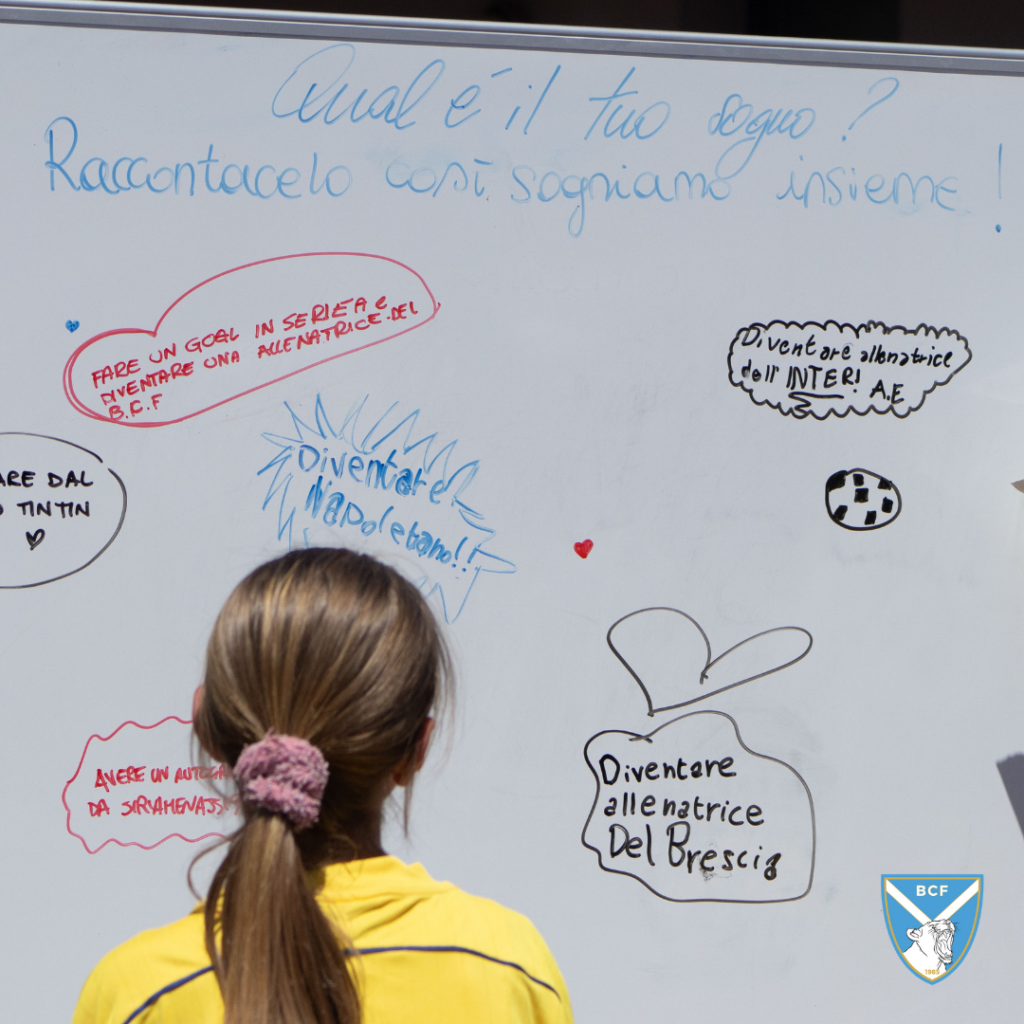 Qual é il tuo sogno ?
Raccontacelo così sogniamo insieme !
FARE UN GOAL IN SERIE A e
DIVENTARE UNA ALLENATRICE DEL
B.C.F
Diventare allenatrice
dell' INTER! A.E
ARE DAL
TINTIN
Diventare
Napoletano!!
AVERE UN
DA
Diventare
allenatrice
Del Brescia
BCF
1985